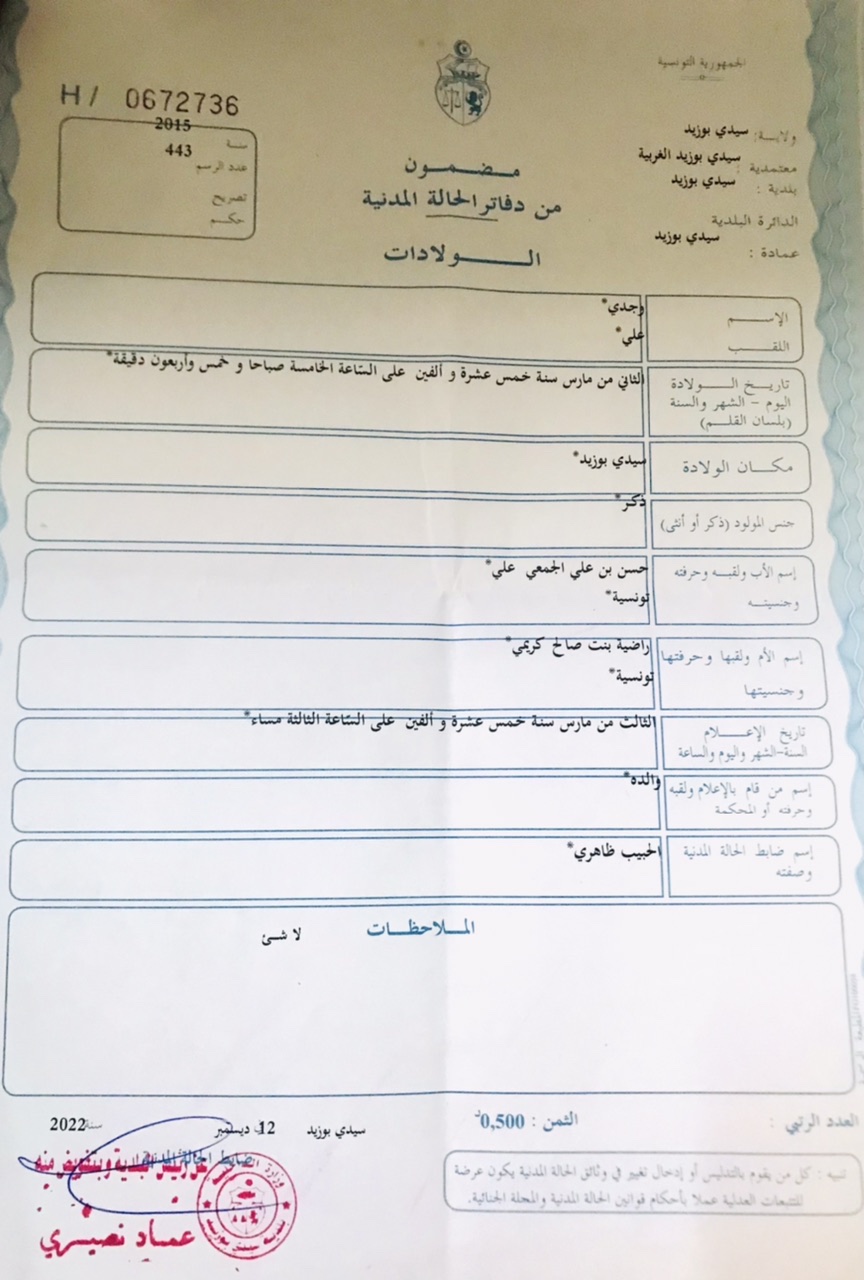 الجمهورية التونسية
H/ 0672736
ولاية : سيدي بوزيد
معتمدية : سيدي بوزيد الغربية
بلدية : سيدي بوزيد
الدائرة البلدية
سيدي بوزيد
عمادة :
2015 سنة
443 عدد الرسم
تصريح
حكم
مضمون
من دفاتر الحالة المدنية
الولادات
الإسم وجدي*
اللقب علي*
تاريخ الولادة
اليوم - الشهر والسنة
(بلسان القلم)
الثاني من مارس سنة خمس عشرة و ألفين على السّاعة الخامسة صباحا و خمس وأربعون دقيقة*
مكان الولادة سيدي بوزيد*
جنس المولود (ذكر أو أنثى) ذكر*
إسم الأب ولقبه وحرفته
وجنسيته
حسن بن علي الجمعي علي*
تونسية*
إسم الأم ولقبها وحرفتها
وجنسيتها
راضية بنت صالح كريمي*
تونسية*
تاريخ الإعلام
السنة-الشهر واليوم والساعة
الثالث من مارس سنة خمس عشرة و ألفين على السّاعة الثالثة مساء*
إسم من قام بالإعلام ولقبه
وحرفته أو المحكمة
والده*
إسم ضابط الحالة المدنية
وصفته
الحبيب ظاهري*
الملاحظات
لا شئ
العدد الرتبي :
الثمن : 0,500د
سيدي بوزيد 12 ديسمبر سنة 2022
ضابط الحالة المدنية
تنبيه : كل من يقوم بالتدليس أو إدخال تغيير في وثائق الحالة المدنية يكون عرضة
للتتبعات العدلية عملا بأحكام قوانين الحالة المدنية والمجلة الجنائية.
عماد نصيري